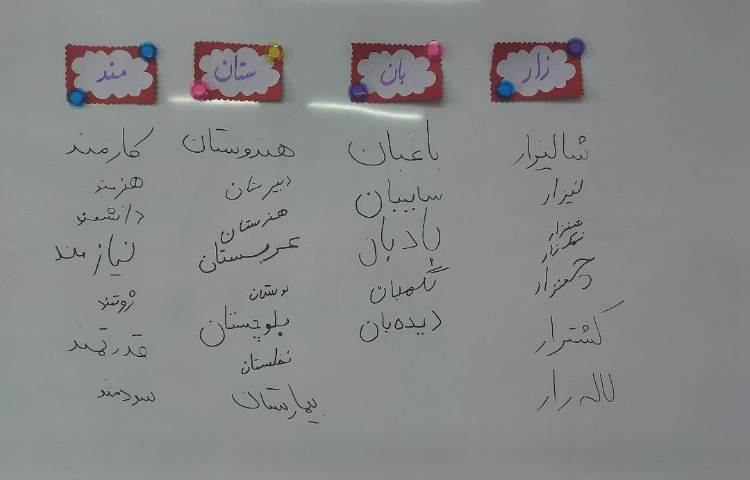 زار
شالیزار
نیزار
شنزار
نمکزار
چمنزار
کشتزار
لاله زار
بان
باغبان
سایبان
بادبان
نگهبان
دیده‌بان
ستان
هندوستان
دبیرستان
هنرستان
عربستان
بوستان
بلوچستان
نخلستان
بیمارستان
مند
کارمند
هنرمند
دانشمند
نیازمند
ثروتمند
قدرتمند
سودمند